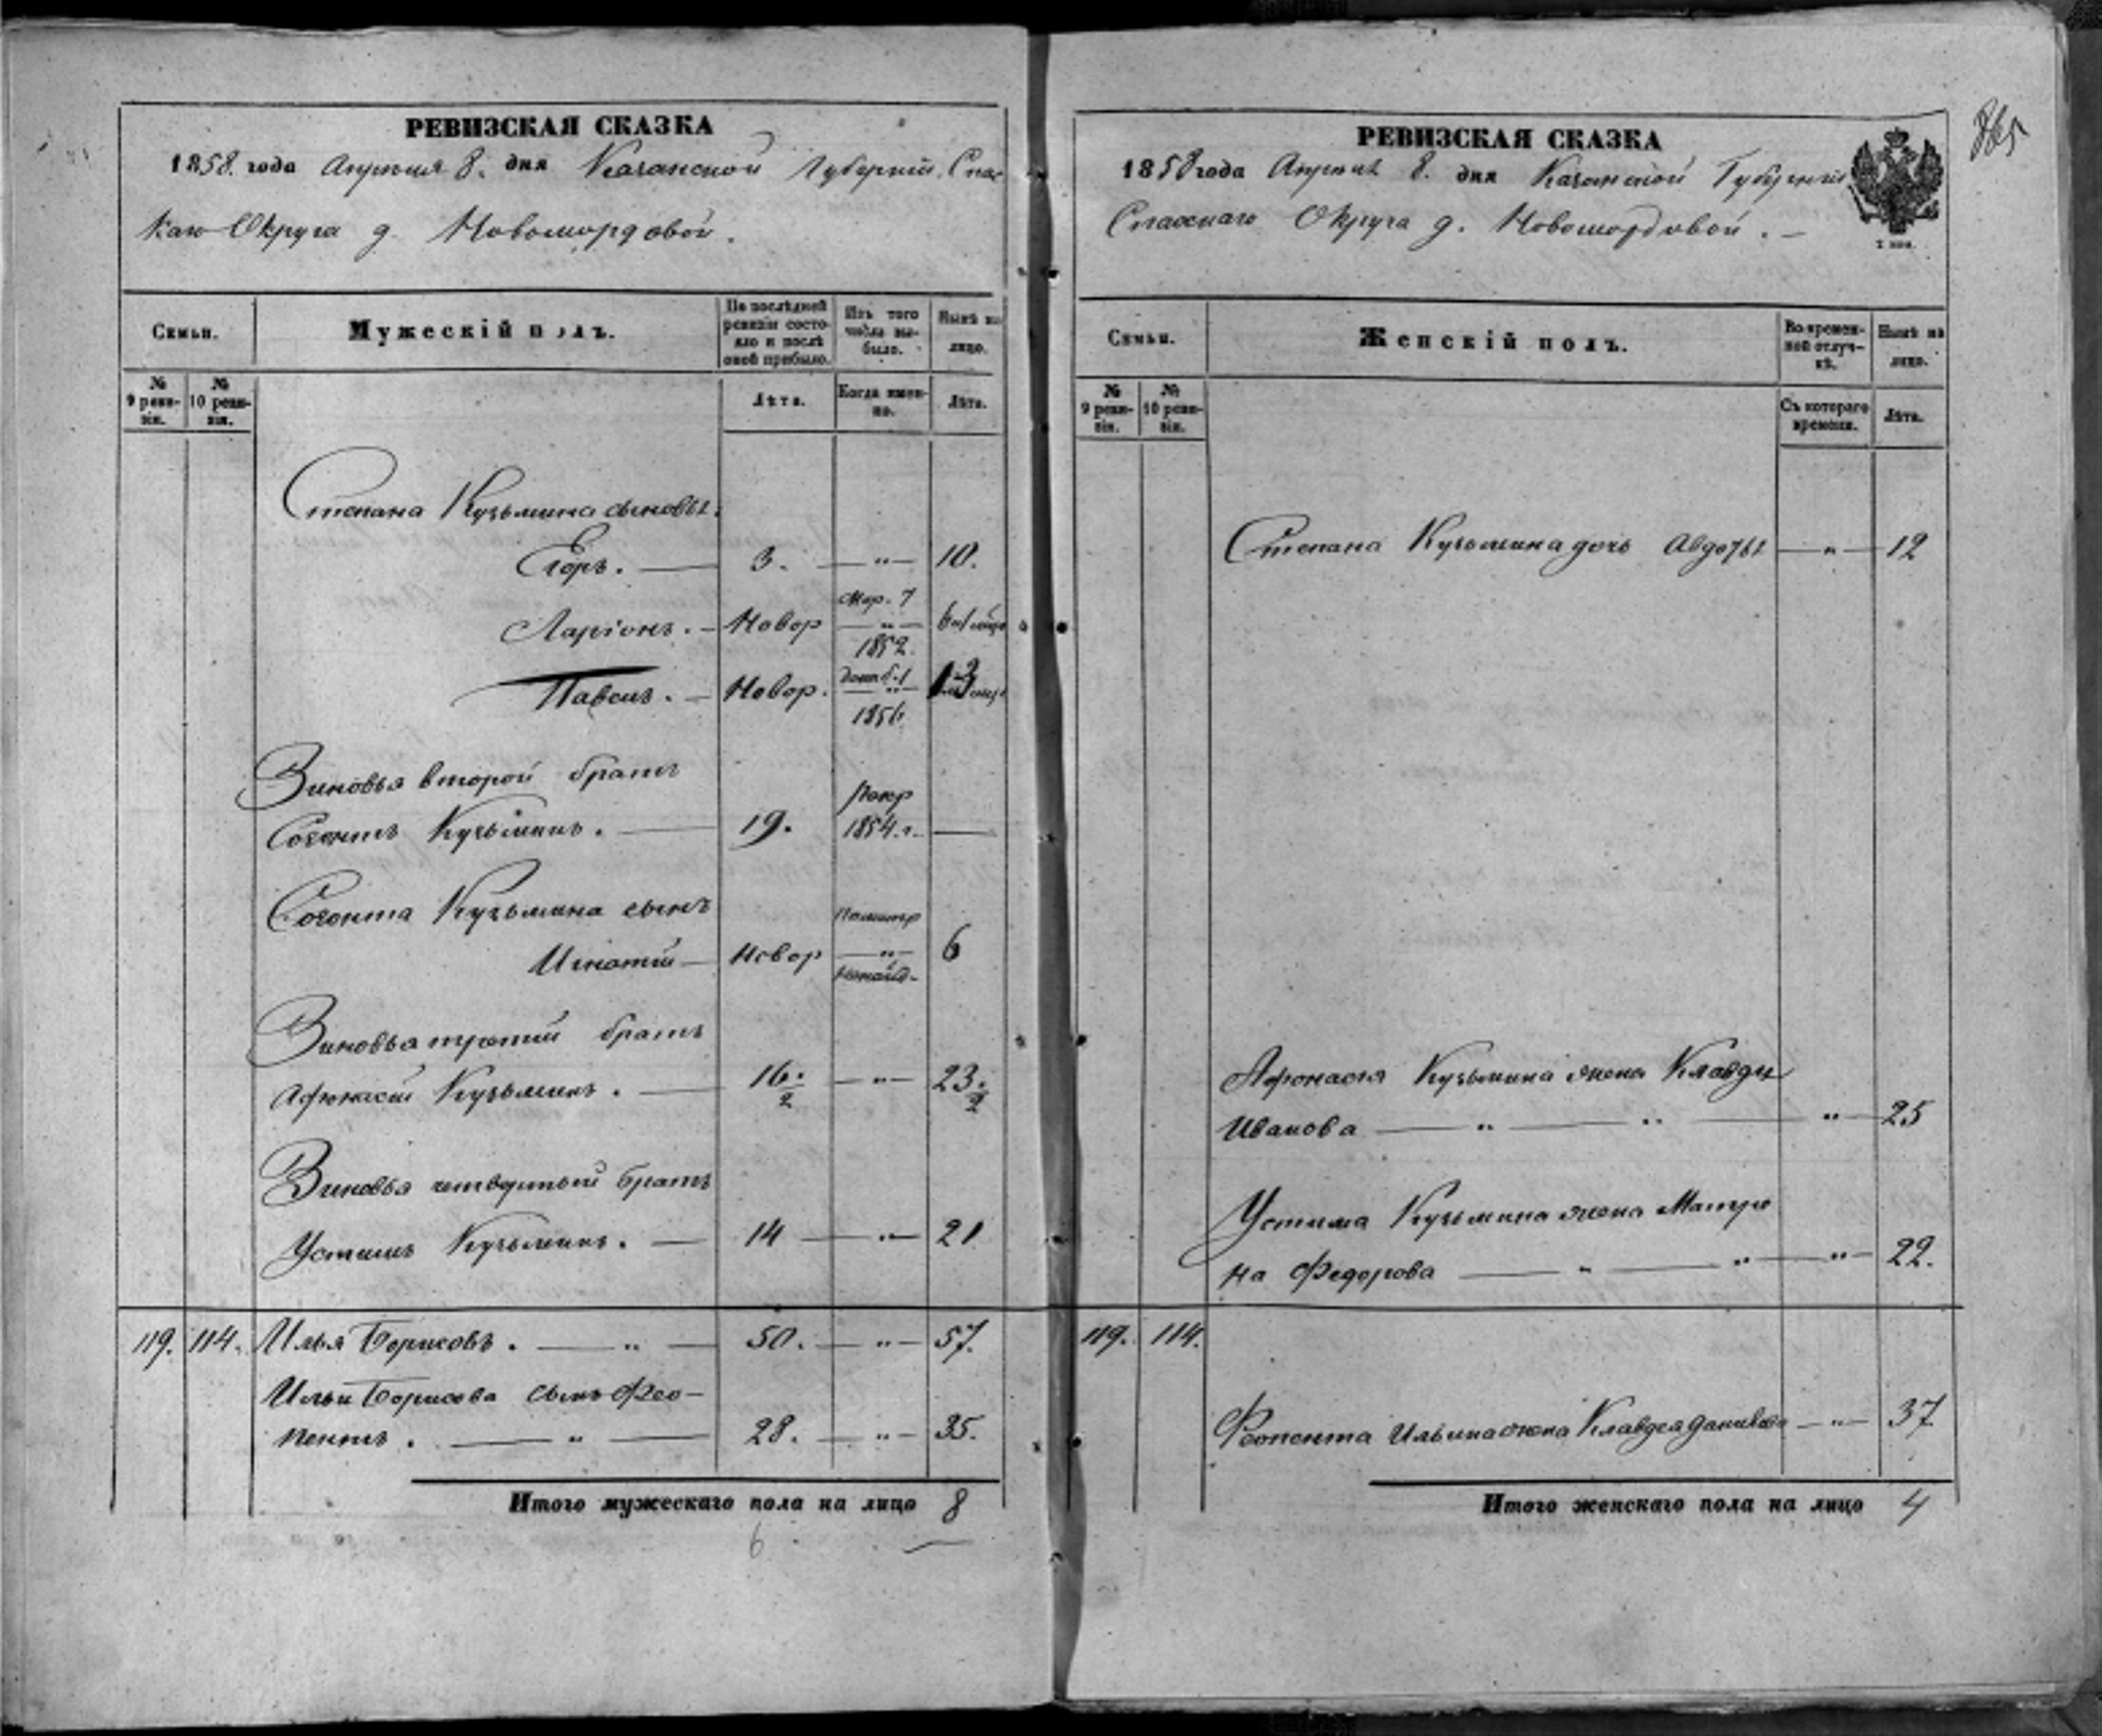 РЕВИЗСКАЯ СКАЗКА
1858. года Апреля 8. дня Казанской Губерніи Спас
каго Округа д. Новомордовой.
Семьи.
Мужескій полъ.
По послѣдней ревизіи состояло и послѣ оной прибыло.
Изъ того числа выбыло.
Нынѣ на лицо.
№ 9 ревизіи.
№ 10 ревизіи.
Лѣта.
Когда именно.
Лѣта.
Степана Кузьмина сыновья:
Егоръ. 3. „ 10.
Мар. 7
Ларіонъ. Новор „
1852.
Павелъ. Новор. „
1856.
Зиновья второй братъ
Созонтъ Кузьминъ. 19. 1854.г.
Созонта Кузьмина сынъ
Игнатій Новор „ 6
Зиновья третій братъ
Афонасій Кузьминъ. 16. 2 „ 23. 2
Зиновья четвертый братъ
Устимъ Кузьминъ. 14 „ 21
119. 114. Илья Борисовъ. „ 50. „ 57.
Ильи Борисова сынъ Фео-
пентъ. „ 28. „ 35.
Итого мужескаго пола на лицо 8
6
РЕВИЗСКАЯ СКАЗКА
1858 года Апреля 8. дня Казанской Губерніи
Спасскаго Округа д. Новомордовой.
Семьи.
Женскій полъ.
Во временной отлучкѣ.
Нынѣ на лицо.
№ 9 ревизіи.
№ 10 ревизіи.
Съ котораго времени.
Лѣта.
Степана Кузьмина дочь Авдотья „ 12
Афонасія Кузьмина жена Клавдія
Иванова „ „ „ 25
Устима Кузьмина жена Матре
на Федорова „ „ „ 22.
119. 114.
Феопента Ильина жена Клавдея Данилова „ 37
Итого женскаго пола на лицо 4